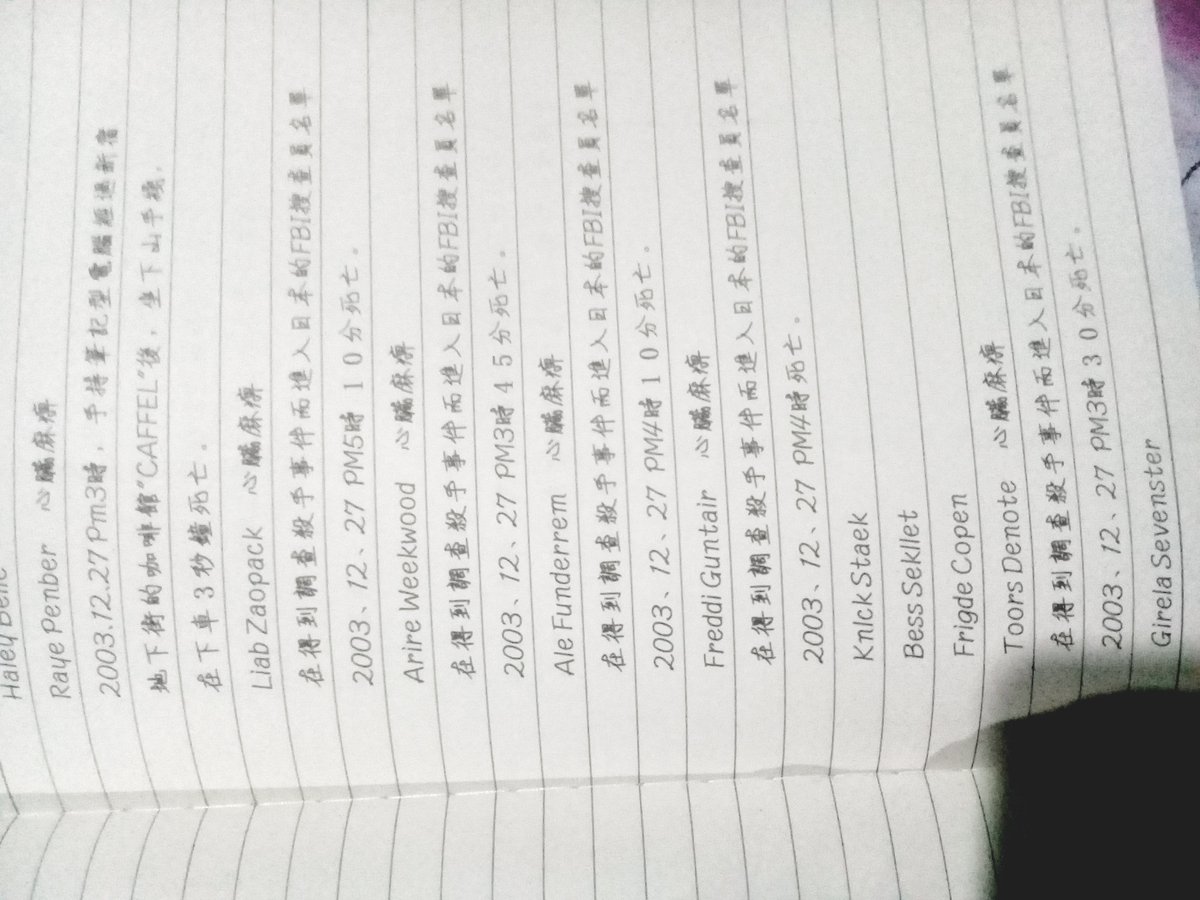 Haley Belle
Raye Penber 心臟麻痺
2003.12.27 Pm3時，手持筆記型電腦經過新宿
地下街的咖啡館"CAFFEL"後，坐下山手線，
在下車3秒鐘死亡。
Liab Zaopack 心臟麻痺
在得到調查殺手事件而進入日本的FBI搜查員名單
2003、12、27 PM5時 10分死亡。
Arire Weekwood 心臟麻痺
在得到調查殺手事件而進入日本的FBI搜查員名單
2003、12、27 PM3時45分死亡。
Ale Funderrem 心臟麻痺
在得到調查殺手事件而進入日本的FBI搜查員名單
2003、12、27 PM4時10分死亡。
Freddi Guntair 心臟麻痺
在得到調查殺手事件而進入日本的FBI搜查員名單
2003、12、27 PM4時死亡。
Knlck Staek
Bess Sekllet
Frigde Copen
Toors Denote 心臟麻痺
在得到調查殺手事件而進入日本的FBI搜查員名單
2003、12、27 PM3時30分死亡。
Girela Sevenster